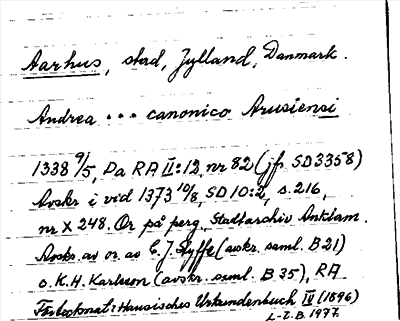 Aarhus, stad, Jylland, Danmark.
Andrea ... canonico Arusiensi
1338 9/5, Da RA II:12, nr 82 (jfr SD3358)
Avskr i vid 1373 10/8, SD 10:2, s. 216,
nr X 248. Or på perg, Stadtarchiv Anklam.
Avskr. av or. av C. J. Styffe (avskr. saml. B 21)
o. K.H. Karlsson (avskr. saml. B 35), RA.
Hansisches Urkundenbuch IV (1896)
L-E.B. 1977.